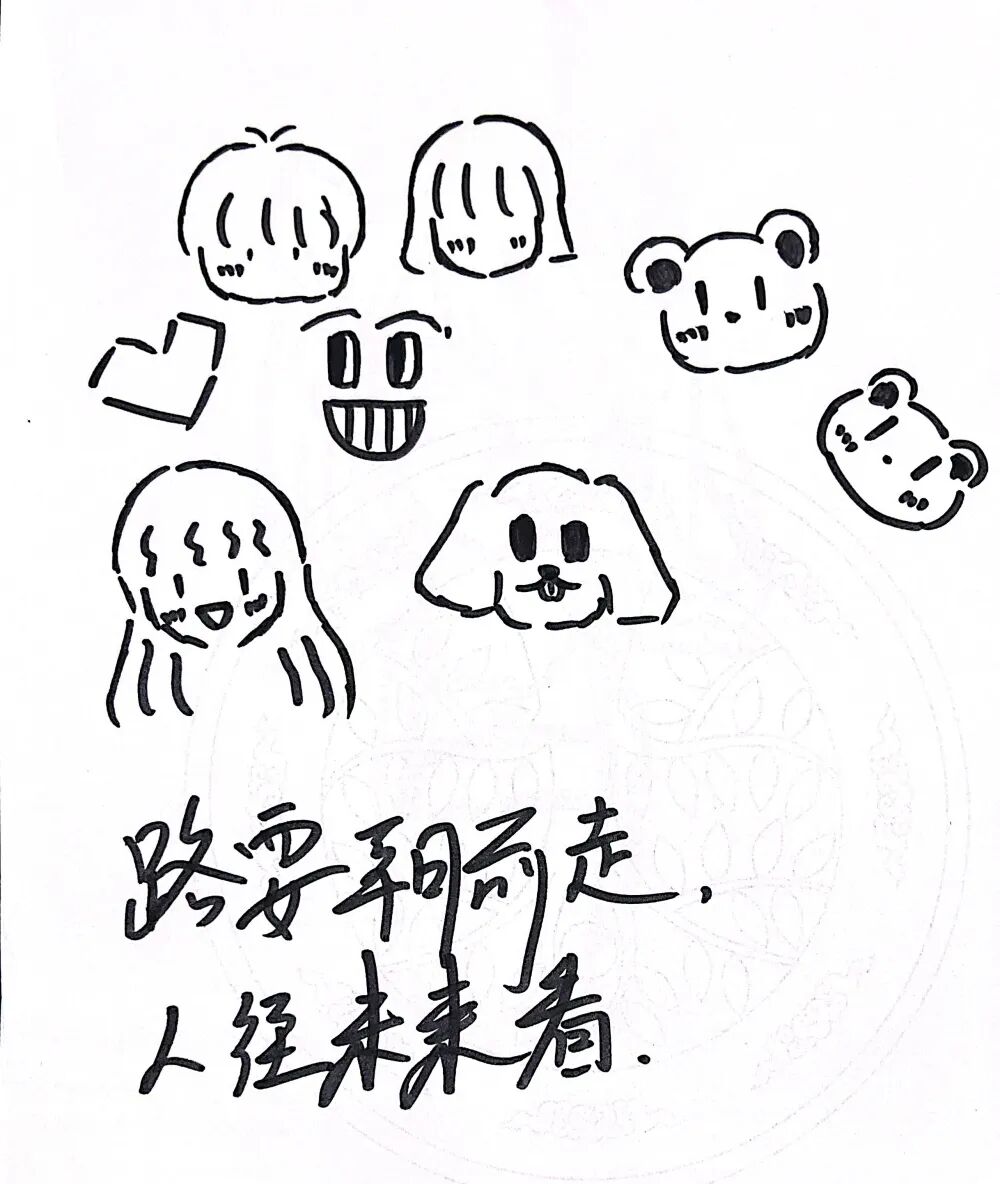 路要朝前走，
人往未来看.